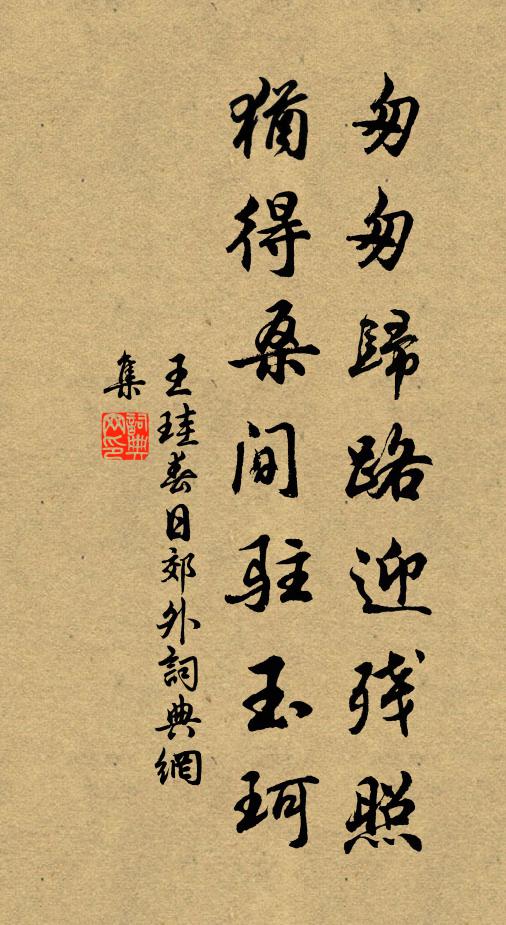 匆匆歸路迎残照
猶得桑间駐玉珂
王珪春日郊外詞典網
集
詞典网印